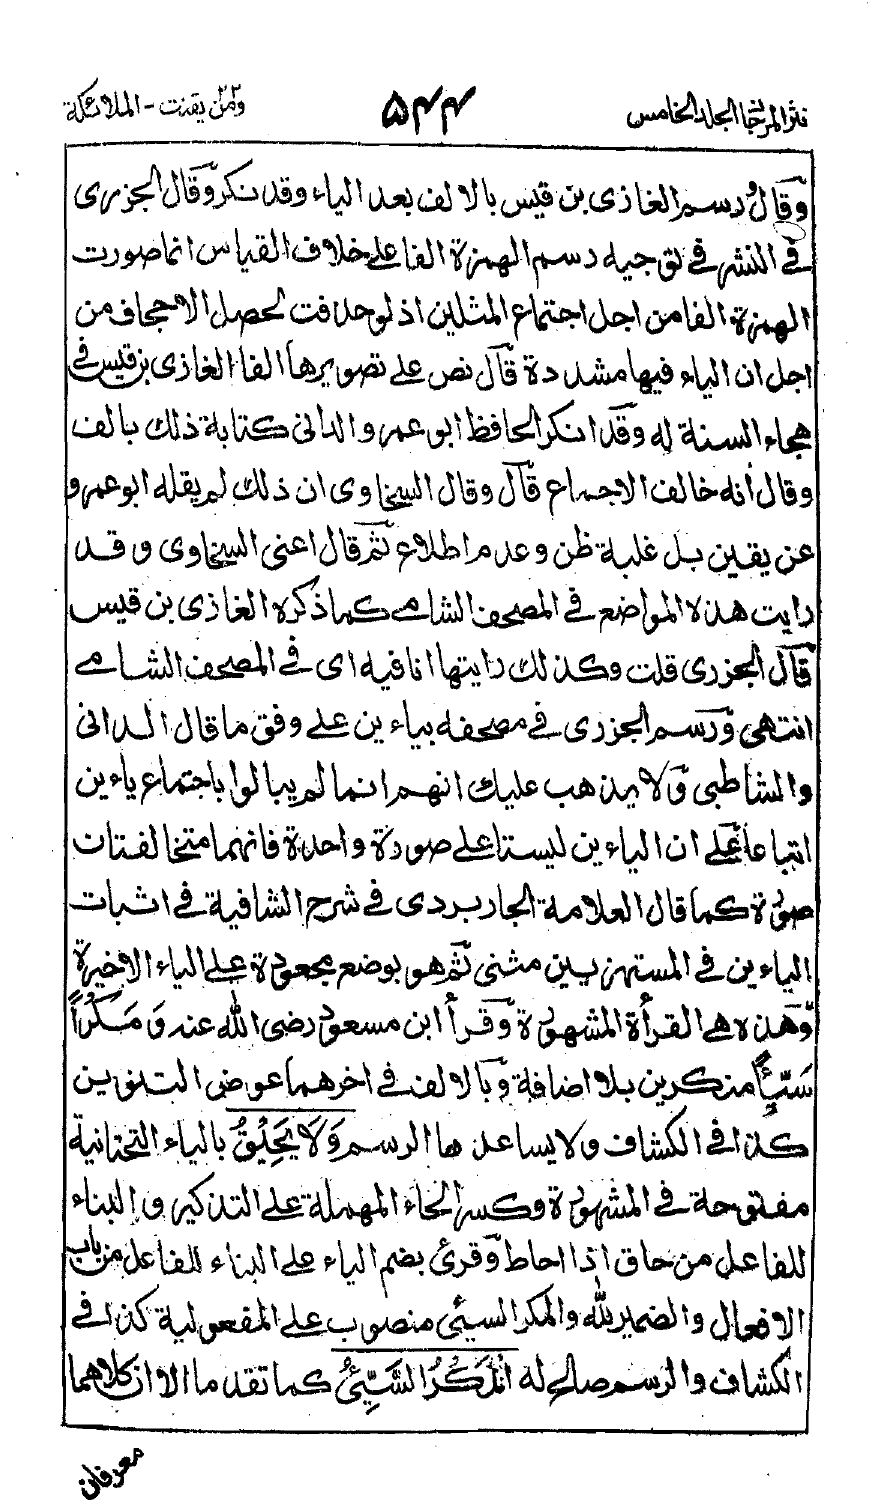 نثر المرجان المجلد الخامس ۵۴۴ ومن يقنت - الملائكة
وقال رسم الغازى بن قيس بالالف بعد الياء وقد نكر وقال الجزرى
فى النشر فى توجيه رسم الهمزة الفا على خلاف القياس انما صورت
الهمزة الفا من اجل اجتماع المثلين اذ لو حذفت لحصل الاجحاف من
اجل ان الياء فيها مشددة قال نص على تصويرها الفا الغازى بن قيس فى
هجاء السنة له وقد انكر الحافظ ابو عمرو الدانى كتابة ذلك بالف
وقال انه خالف الاجماع قال وقال السخاوى ان ذلك لم يقله ابو عمرو
عن يقين بل غلبة ظن وعدم اطلاع ثم قال اعنى السخاوى و قد
رايت هذه المواضع فى المصحف الشامى كما ذكره الغازى بن قيس
قال الجزرى قلت وكذلك رايتها انا فيه اى فى المصحف الشامى
انتهى ورسم الجزرى فى مصحفه بياءين على وفق ما قال الدانى
والشاطبى ولا يذهب عليك انهم انما لم يبالوا باجتماع ياءين
اتباعا على ان الياءين ليستا على صورة واحدة فانهما متخالفتان
صورة كما قال العلامة الجاربردى فى شرح الشافية فى اثبات
الياءين فى المستهزيين مثنى ثم هو بوضع مجعودة على الياء الاخيرة
وهذه هى القرأة المشهورة وقرأ ابن مسعود رضى الله عنه وَمَكْرًا
سَيِّئًا منكرين بلا اضافة وبالالف فى اخرهما عوض التنوين
كذا فى الكشاف ولا يساعدها الرسم وَلَا يَحِيْقُ بالياء التحتانية
مفتوحة فى المشهورة وكسر الحاء المهملة على التذكير و البناء
للفاعل من حاق اذا احاط وقرئ بضم الياء على البناء للفاعل من باب
الافعال والضمير لله والمكر السيئ منصوب على المفعولية كذا فى
الكشاف والرسم صالح له الْمَكْرُ السَّيِّئُ كما تقدم الا ان كلاهما
معرفان